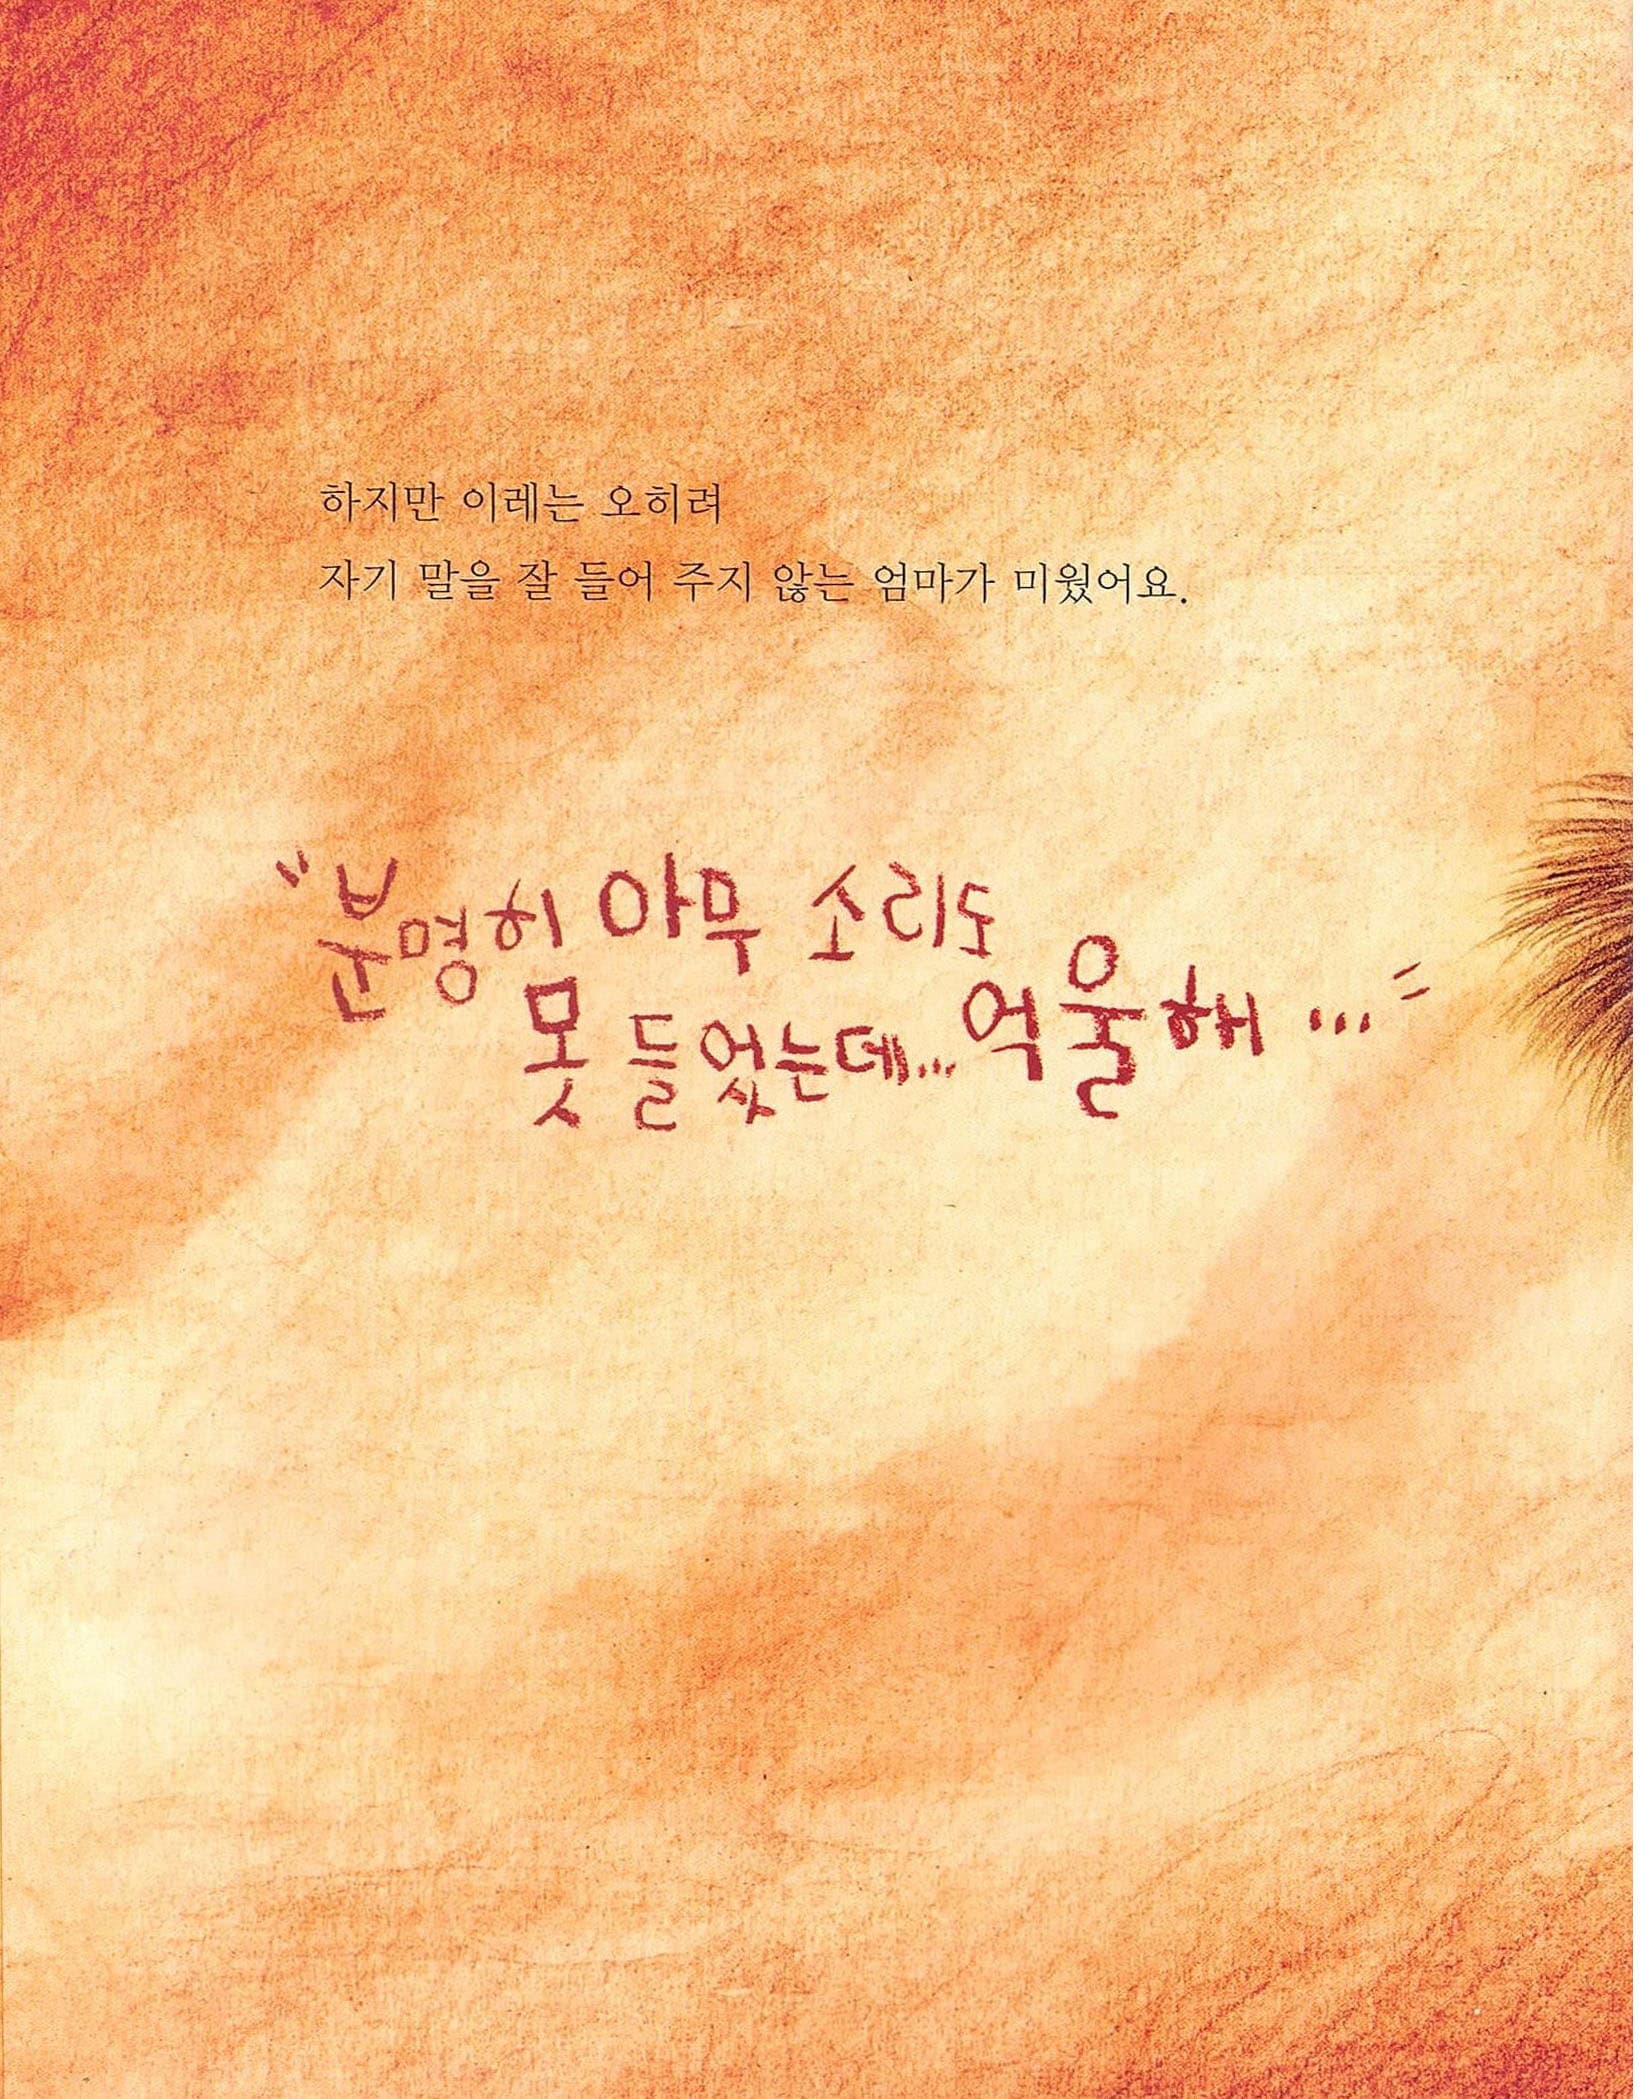 하지만 이레는 오히려
자기 말을 잘 들어 주지 않는 엄마가 미웠어요.
"분명히 아무 소리도
못 들었는데... 억울해..."